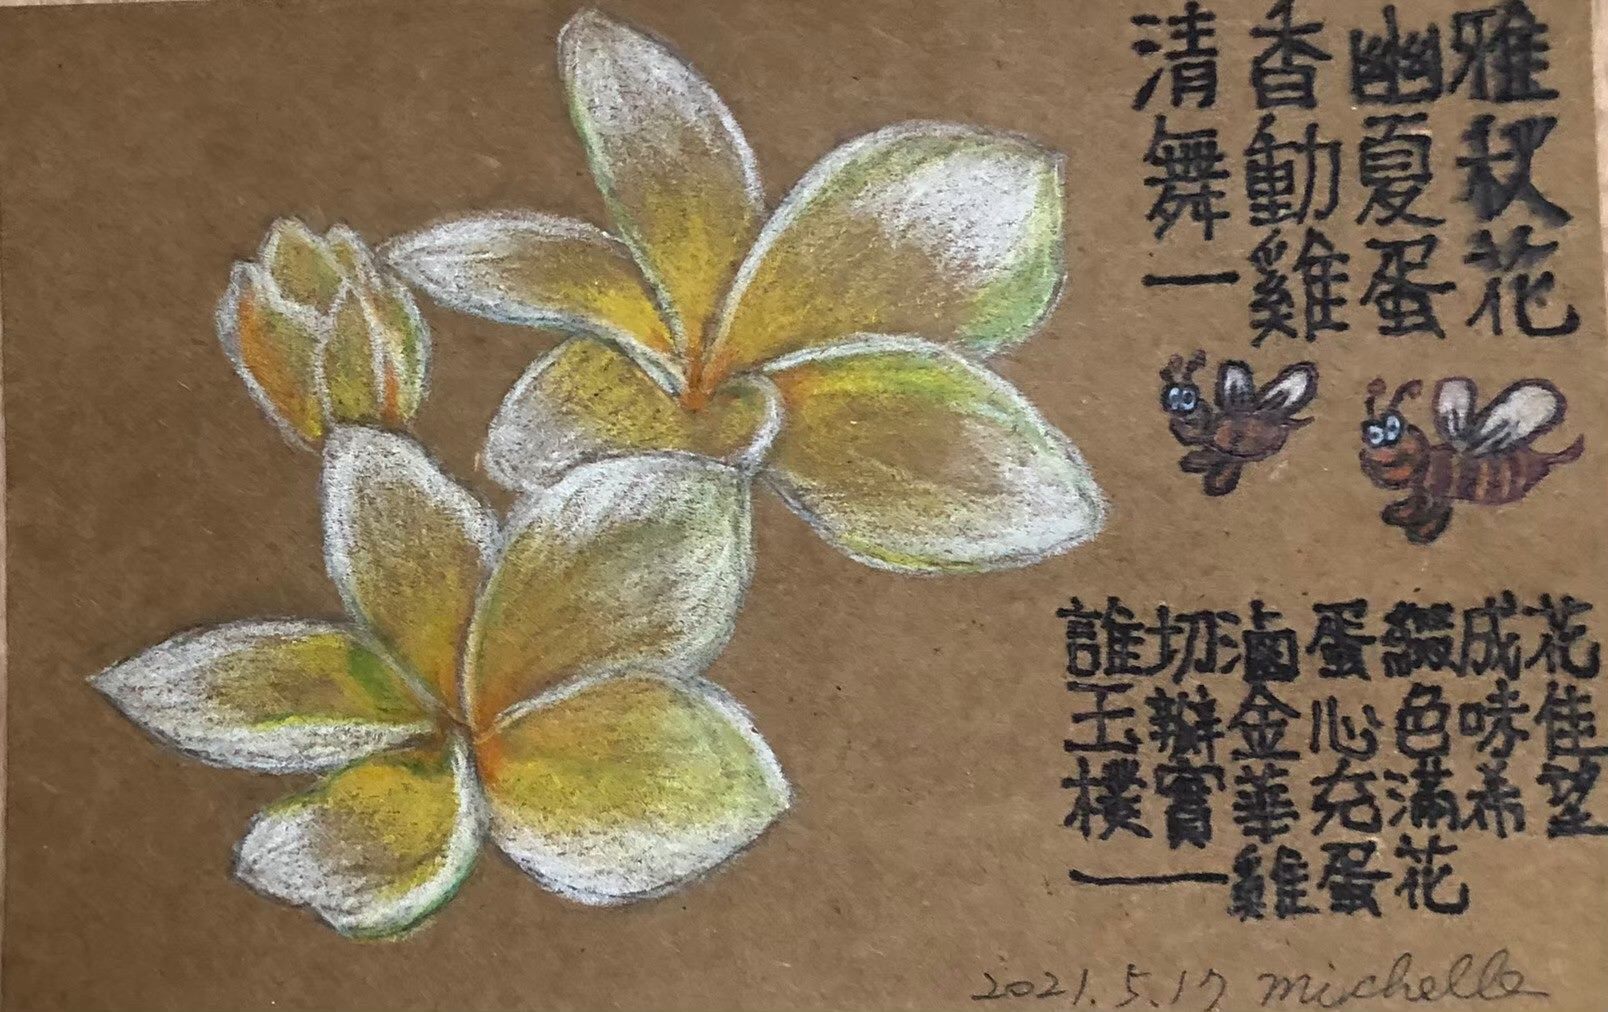 清香幽雅
舞動夏秋
一雞蛋花
誰切滷蛋綴成花
玉瓣金心色味佳
樸實華充滿希望
——雞蛋花
2021.5.17 Michelle